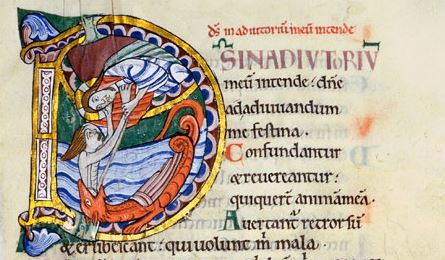 dſ in adiutoriū meū intende
SINADIVTORIV
meū intende: dñe
adadiuuandum
me feſtina.
Confundantur
& reuereantur:
qui querēt animāmeā.
Auertantᷣ retrorſū
& erubeſcant: qui uolunt m̄ mala.